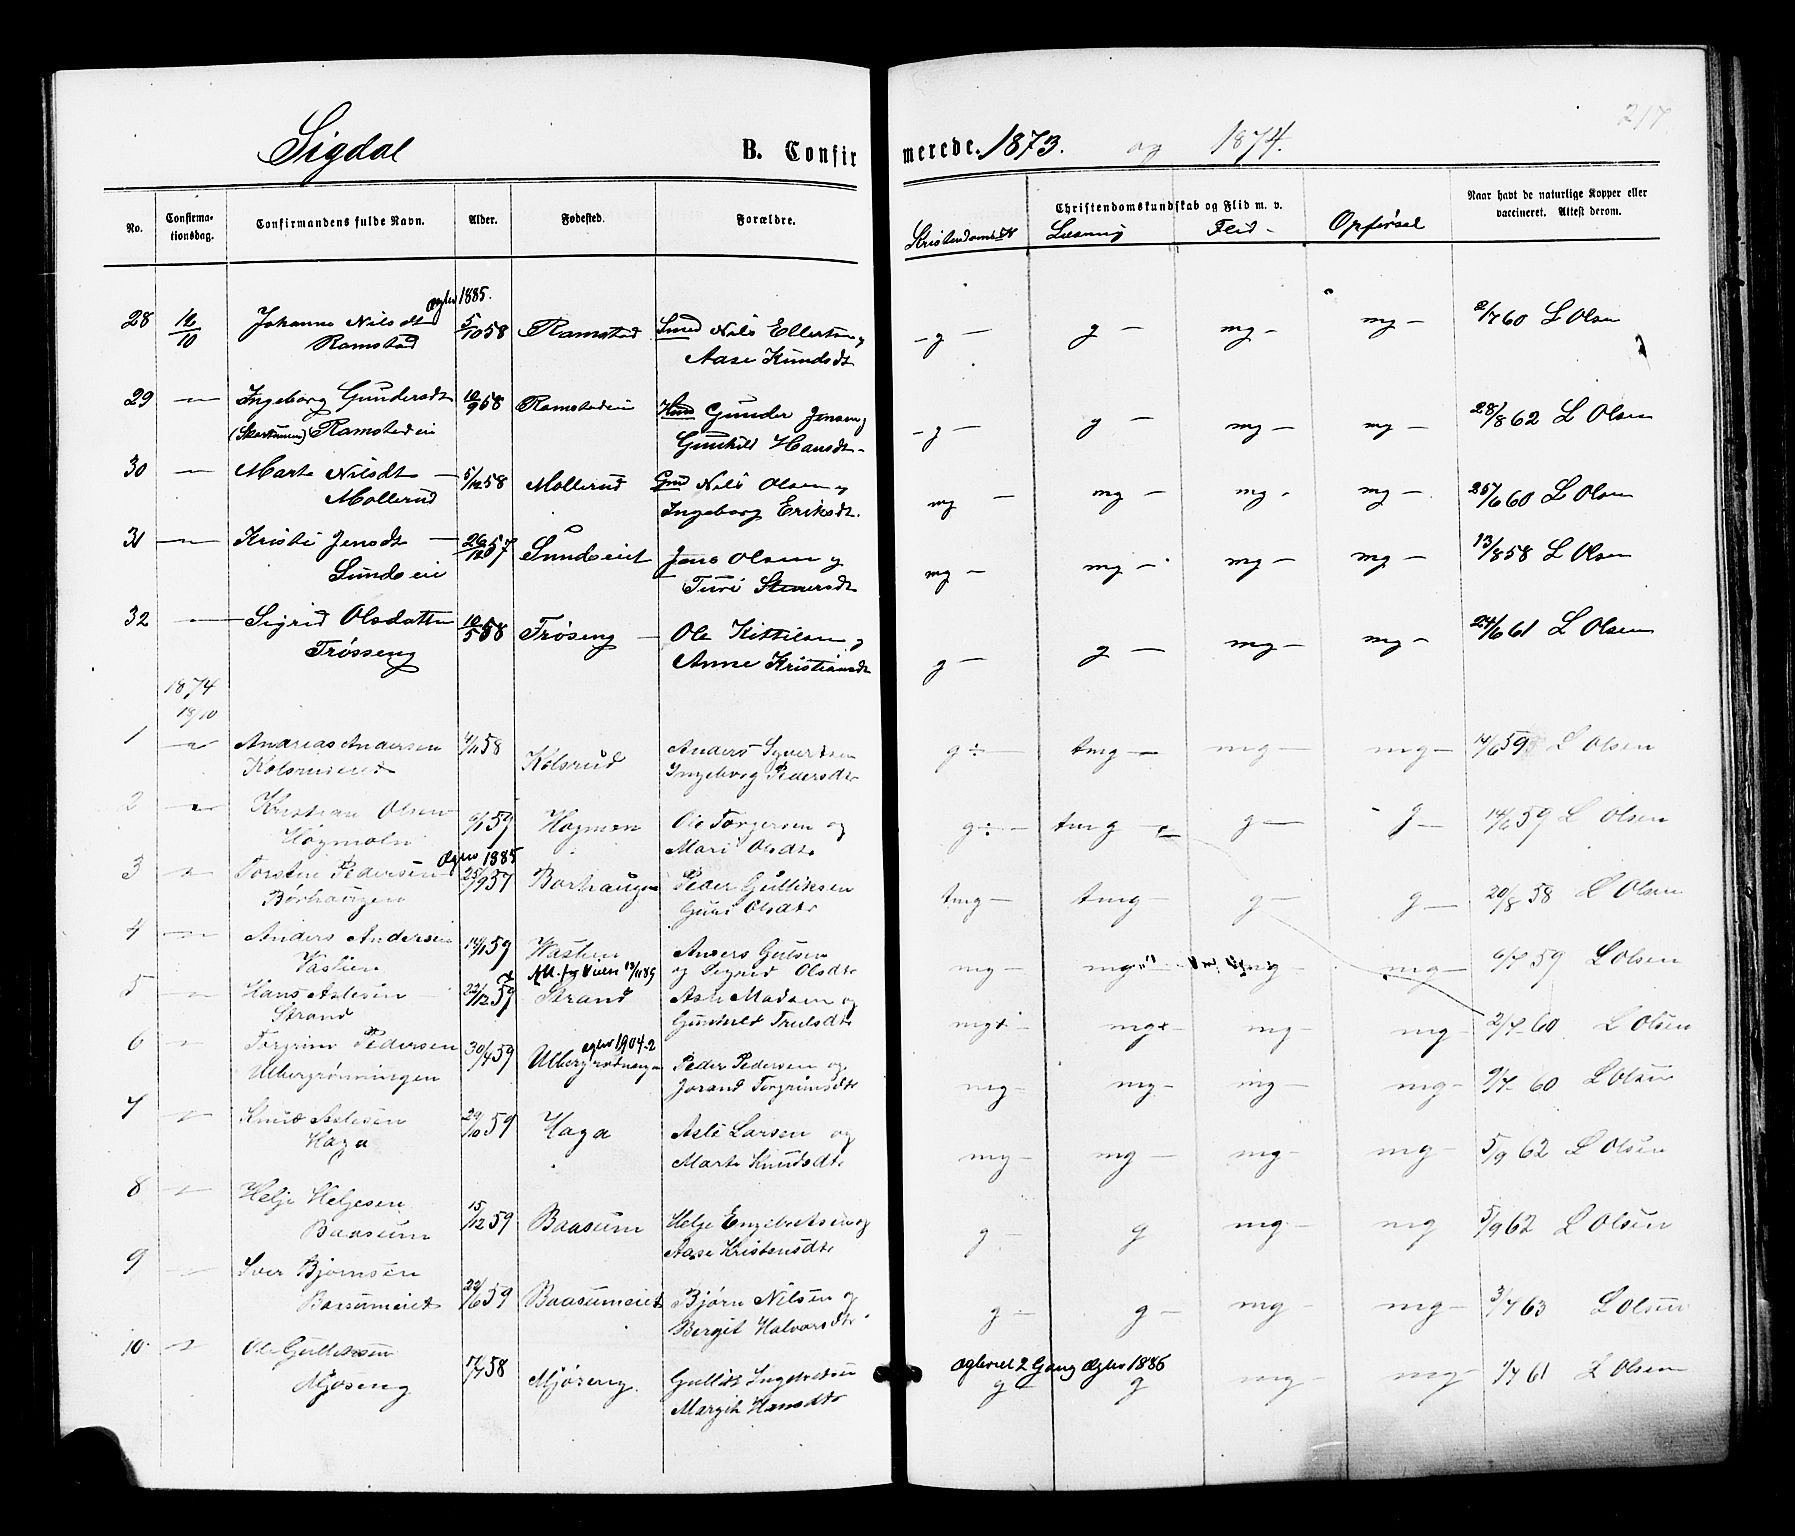 217
Sigdal B. Confirmerede. 1873. og 1874.
No. Confirmationsdag. Confirmandens fulde Navn. Alder. Fødested. Forældre. Christendomskundskab og Flid m. v. Naar havt de naturlige Kopper eller vaccineret. Attest derom.
Læsning Flid Opførsel
28 12/10 Johanne Nilsdt 1885. 5/10 58 Ramstad Nils Ellertsen og -g- g- mg- mg- 2/7 60 L Olsen
Ramstad Aase Knudsdt
29 — Ingeborg Gundersdt 12/9 58 Ramstadeie Gunder Jensen og -g- g- mg- mg- 28/8 62 L Olsen
Ramstadeie Gunhild Hansdt-
30 — Marte Nilsdt 5/12 58 Mollerud Nils Olsen og mg- mg- mg- mg- 25/6 60 L Olsen
Mollerud Ingeborg Eriksdt.
31 — Kristi Jensdt 26/12 57 Sundseiet Jens Olsen og mg- mg- mg- mg- 13/8 58 L Olsen
Sundseie Turi Steensrsdt
32 — Sigrid Olsdatter 10/5 58 Trøseng Ole Kittilsen og g- g- mg- mg- 24/6 61 L Olsen
Trøsseng Anne Kristiansdt
1874
18/10
1 — Andreas Andersen 4/1 58 Kolsrud Anders Syvertsen g÷- tmg- mg- mg- 14/6 59 L Olsen
Kolsrudeiet Ingeborg Pedersdtr
2 — Kristian Olsen 9/1 59 Hagmon Ole Torgersen og g÷- tmg- g- g- 14/6 59 L Olsen
Høgmoln Mari Olsdtr
3 — Torsten Pedersen Ægtev 1885 25/9 57 Børhaugen Peder Gulliksen tmg- tmg- g- g- 20/8 58 L Olsen
Børhaugen Guri Olsdtr
4 — Anders Andersen 14/1 59 Vastien Anders Gulsen mg- mg mg mg- 6/7 59 L Olsen
Vastien og Sigrid Olsdtr
5 — Hans Aslesen 22/12 59 Strand Asle Madsen og mg÷ mg+- mg- mg- 2/7 60 L Olsen
Strand Gunhild Trulsdtr
6 — Torgrim Pedersen 30/4 59 Ulberg 1904-2 Peder Pedersen og mg- mg- mg- mg- 9/7 60 L Olsen
Ulbergrønningen Jorand Torgrimsdtr
7 — Knud Aslesen 29/10 59 Haga Asle Larsen og mg- mg- mg- mg- 5/9 62 L Olsen
Haga Marte Knudsdtr
8 — Helje Helgesen 15/12 59 Baasum Helge Engebretsen og g- g mg- mg 5/9 62 L Olsen
Baasum Aase Kristensdtr
9 — Iver Bjørnsen 22/6 59 Baasumeiet Bjørn Nilsen og g- g- mg- mg- 3/7 63 L Olsen
Baasumeiet Bergit Halvorsdtr
10. — Ole Gulliksen 17/7 58 Mjøseng. Gullik Ingebretsen Ægteviet 2 Gang Ægtev 1886 g- g mg- mg- 1/7 61 L Olsen
Mjøseng Margit Hansdtr